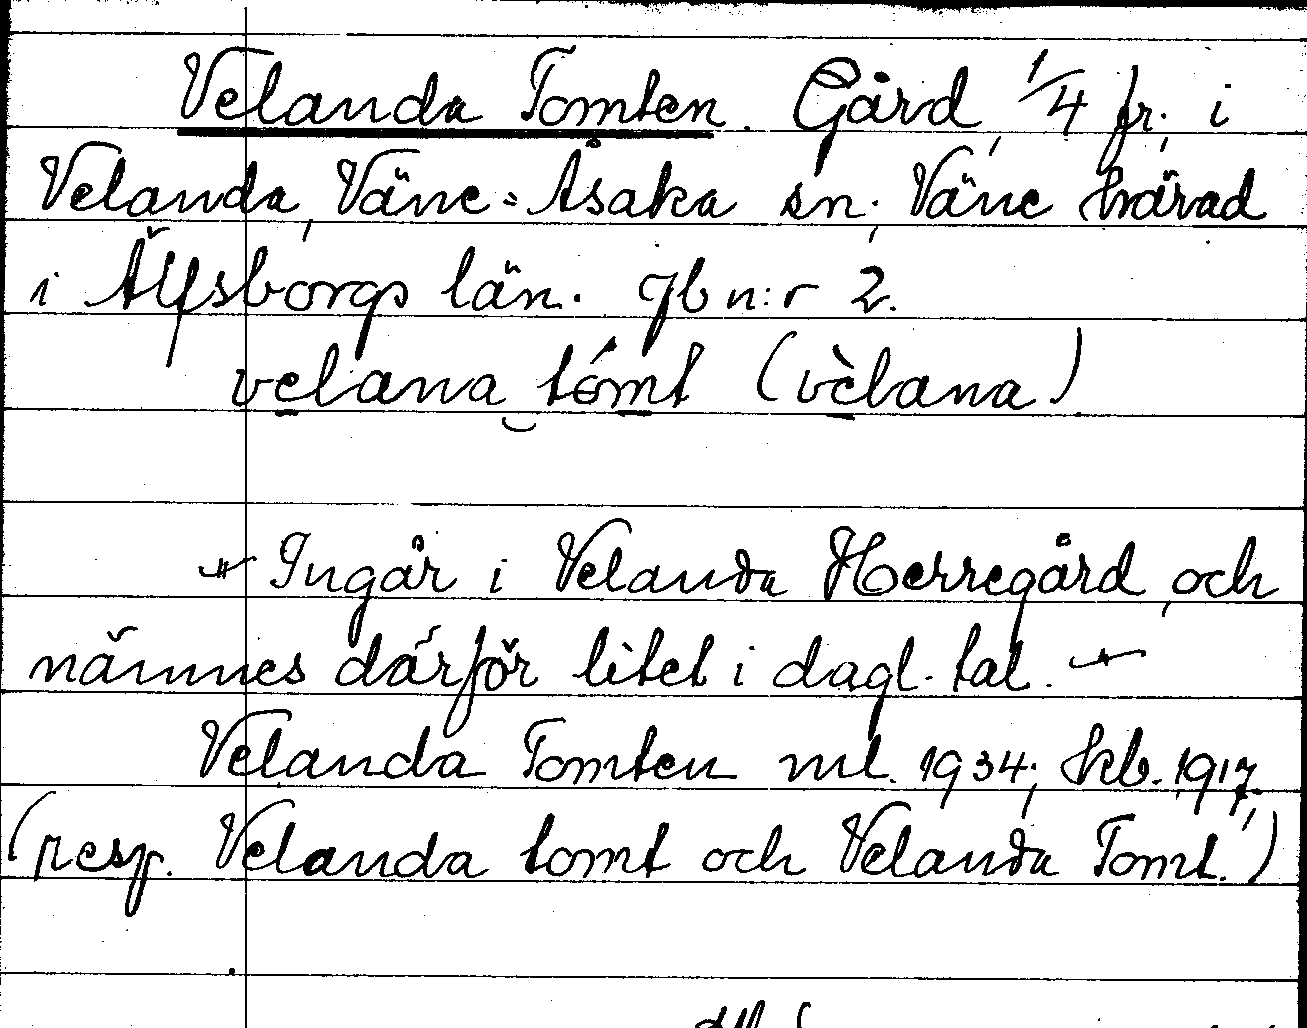 Velanda Tomten. Gård, 1/4 fr., i
Velanda, Väne-Åsaka sn, Väne härad
i Älfsborgs län. Jb n:r 2.
velana tómt (vèlana)
Ingår i Velanda Herregård, och
nämnes därför litet i dagl. tal.
Velanda Tomten ml. 1934; kb. 1917,
(resp. Velanda tomt och Velanda Tomt.)